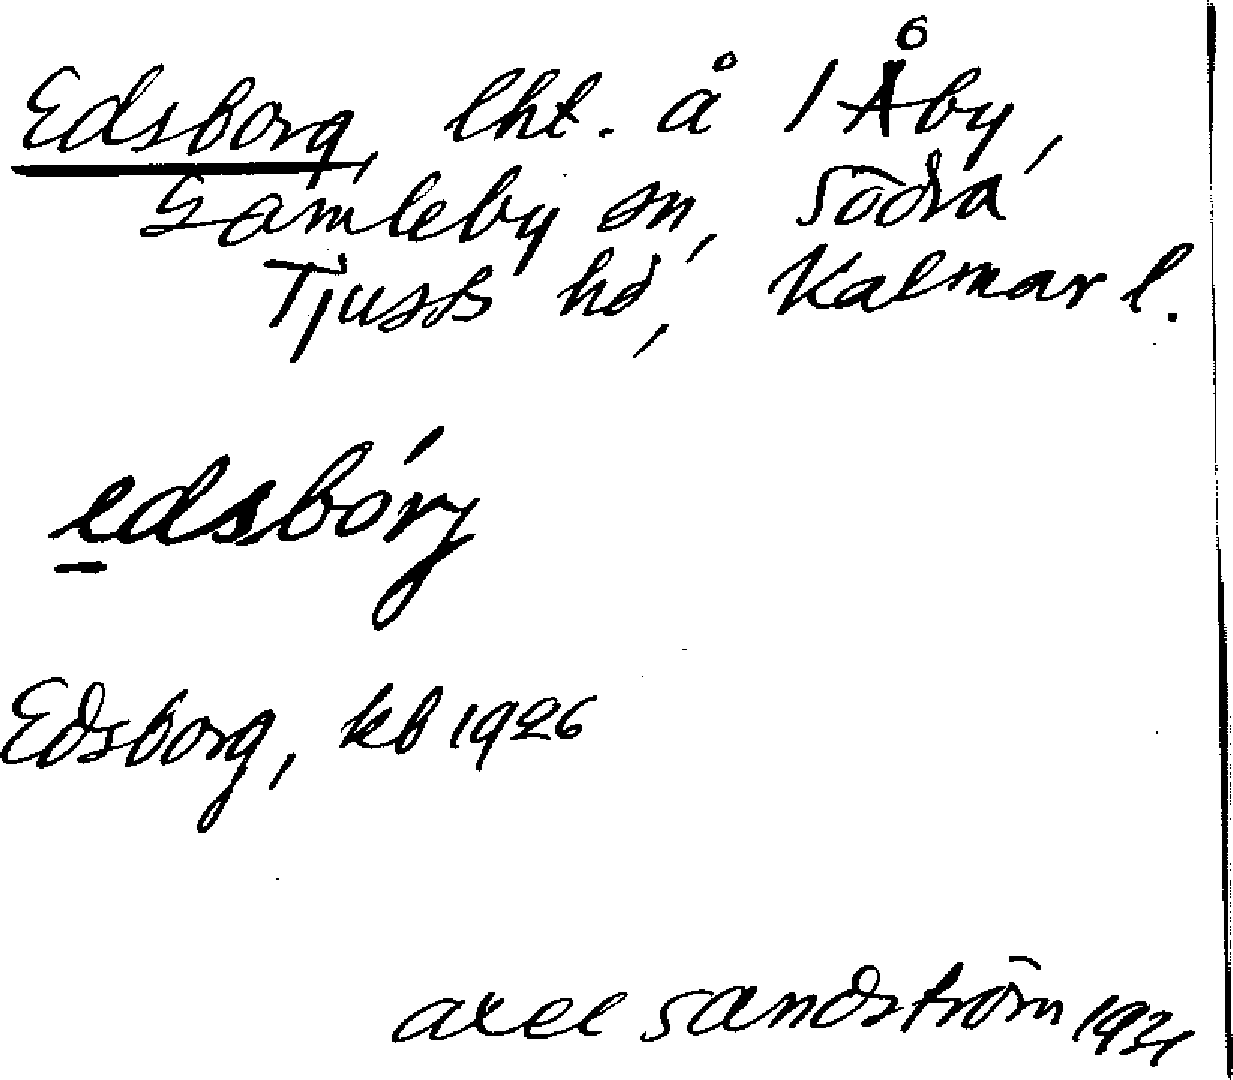 Edsborg, lht. å 1 Åby,
Gamleby sn, Södra
Tjusts hd, Kalmar l.
edsbórj
Edsborg, kb 1926
Axel Sandström 1931